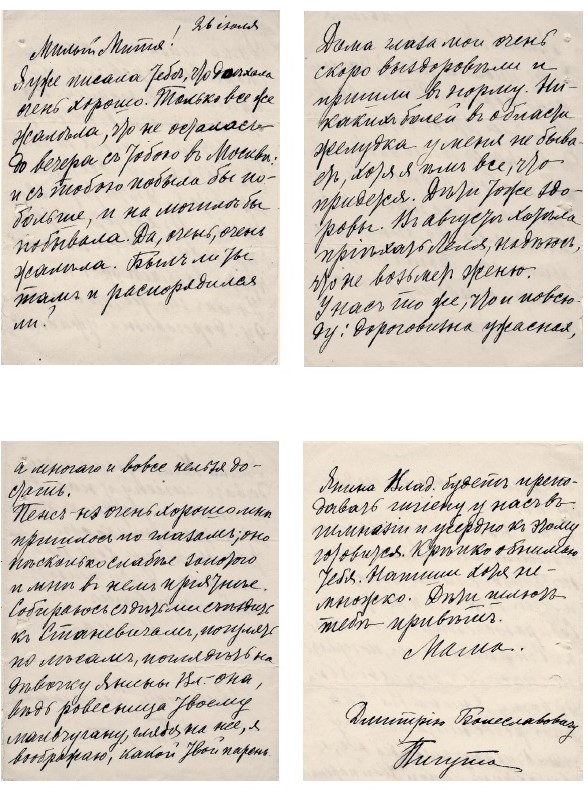 26 іюля
Милый Митя!
Я уже писала Тебѣ, что доѣхала
очень хорошо. Только все же
жалѣла, что не осталась
до вечера съ Тобою въ Москвѣ:
и съ тобою побыла бы по-
больше, и на могилѣ бы
побывала. Да, очень, очень
жалѣла. Былъ ли Ты
тамъ и распорядился
ли?
Дома глаза мои очень
скоро выздоровѣли и
пришли въ норму. Ни-
какихъ болей въ области
желудка у меня не быва-
етъ, хотя я ѣмъ все, что
придется. Дѣти тоже здо-
ровы. Въ августѣ хотѣла
пріѣхать Леля, надѣюсь,
что не возьметъ женю.
У насъ то же, что и повсю-
ду: дороговизна ужасная,
а многаго и вовсе нельзя до-
стать.
Пенсъ-нэ очень хорошо мнѣ
пришлось по глазамъ; оно
нѣсколько слабѣе золотого
и мнѣ въ немъ пріятнѣе.
Собираюсь съ дѣтьми съѣздить
къ Станевичамъ, погулять
по лѣсамъ, поглядѣть на
дѣвочку Янины Вл-оны,
вѣдь ровесница Твоему
мальчугану, глядя на нее, я
воображаю, какой Твой парень.
Янина Влад. будетъ препо-
давать гигіену у насъ въ
гимназіи и усердно къ этому
готовится. Крѣпко обнимаю
Тебя. Напиши хотя не-
множко. Дѣти шлютъ
тебѣ привѣтъ.
Мама.
Дмитрію Болеславовичу
Пигута